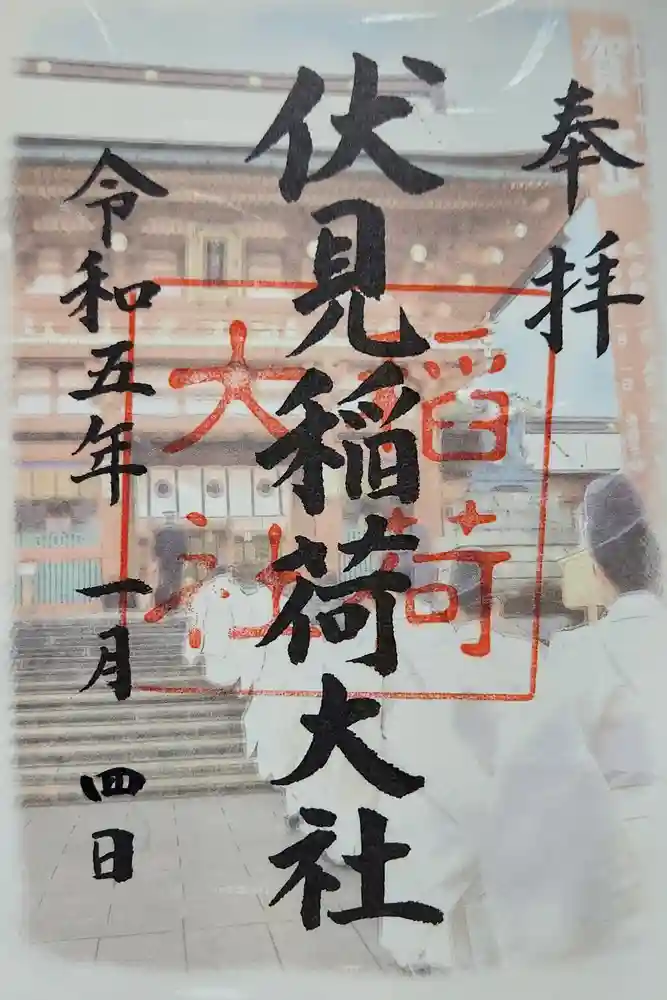 奉拝
伏見稲荷大社
令和五年一月四日
稲荷
大社
賀正